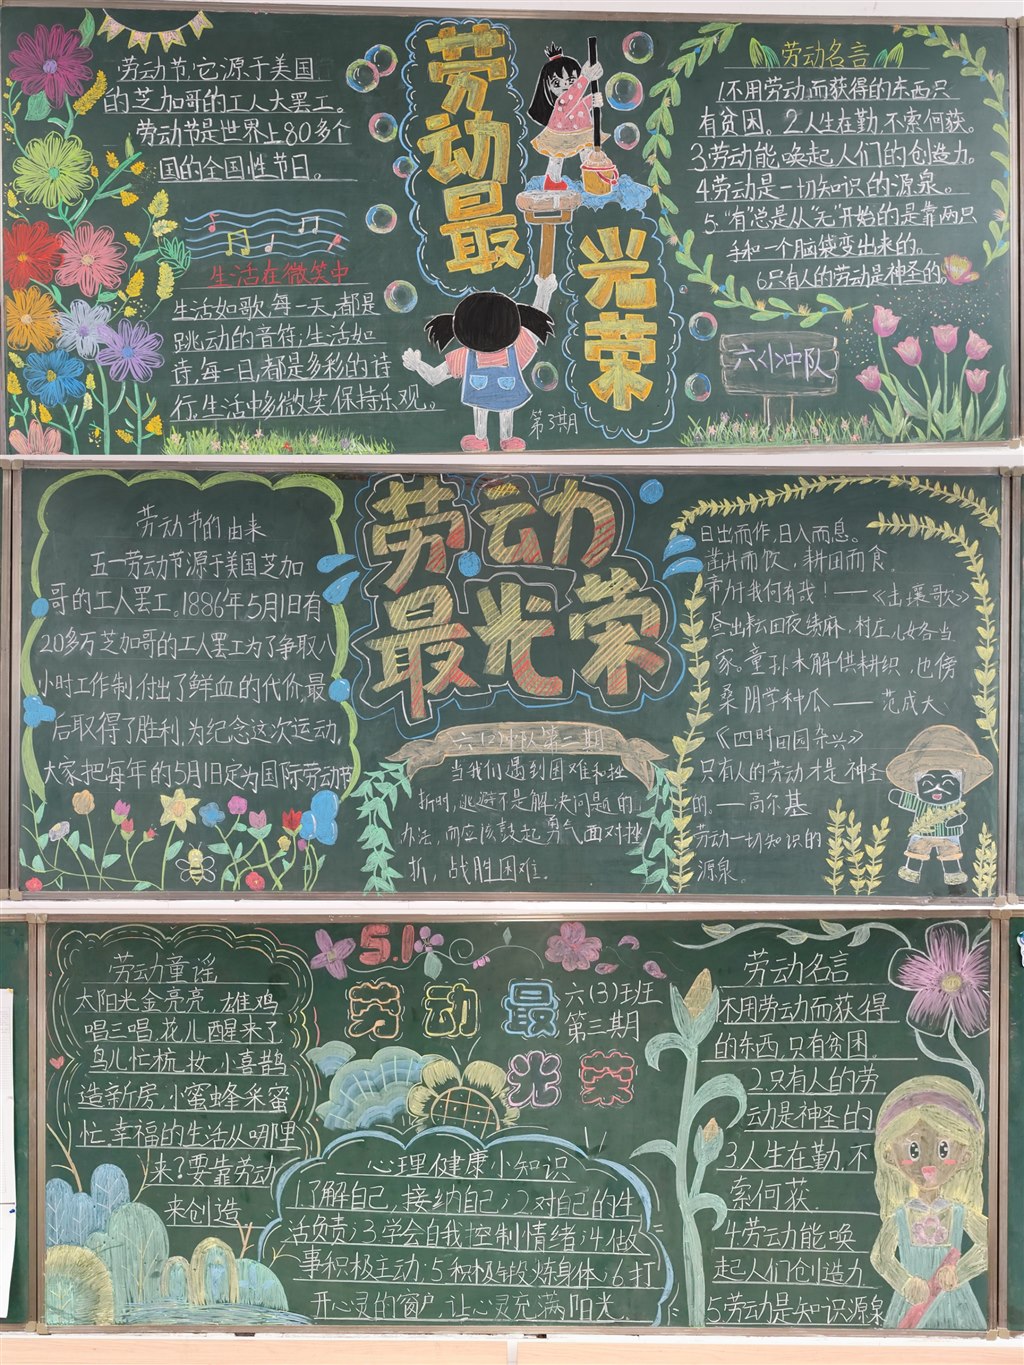 劳动节,它源于美国
的芝加哥的工人大罢工。
劳动节是世界上80多个
国的全国性节日。
生活在微笑中
生活如歌,每一天,都是
跳动的音符;生活如
诗,每一日,都是多彩的诗
行,生活中多微笑,保持乐观。
劳动最
光荣
第3期
劳动名言
1不用劳动而获得的东西只
有贫困。2人生在勤,不索何获。
3劳动能,唤起人们的创造力。
4劳动是一切知识的源泉。
5."有"总是从"无"开始的是靠两只
手和一个脑袋变出来的。
6只有人的劳动是神圣的。
六<1>中队
劳动节的由来
五一劳动节源于美国芝加
哥的工人罢工。1886年5月1日有
20多万芝加哥的工人罢工为了争取八
小时工作制,付出了鲜血的代价,最
后取得了胜利,为纪念这次运动,
大家把每年的5月1日定为国际劳动节
劳动
最光荣
六(2)中队第二期
当我们遇到困难和挫
折时,逃避不是解决问题的
办法,而应该鼓起勇气面对挫
折,战胜困难.
日出而作,日入而息。
凿井而饮,耕田而食.
帝力于我何有哉!——《击壤歌》
昼出耘田夜绩麻,村庄儿女各当
家。童孙未解供耕织,也傍
桑阴学种瓜——范成大
《四时田园杂兴》
只有人的劳动才是神圣
的.——高尔基
劳动一切知识的
源泉。
劳动童谣
太阳光金亮亮,雄鸡
唱三唱,花儿醒来了
鸟儿忙梳妆,小喜鹊
造新房,小蜜蜂采蜜
忙,幸福的生活从哪里
来?要靠劳动
来创造
5.1
劳动最
光荣
六(3)班
第三期
心理健康小知识
1了解自己,接纳自己;2对自己的生
活负责;3学会自我控制情绪;4做
事积极主动;5积极锻炼身体;6打
开心灵的窗户,让心灵充满阳光.
劳动名言
1不用劳动而获得
的东西,只有贫困.
2只有人的劳
动是神圣的
3人生在勤,不
索何获.
4劳动能唤
起人们创造力
5劳动是知识源泉